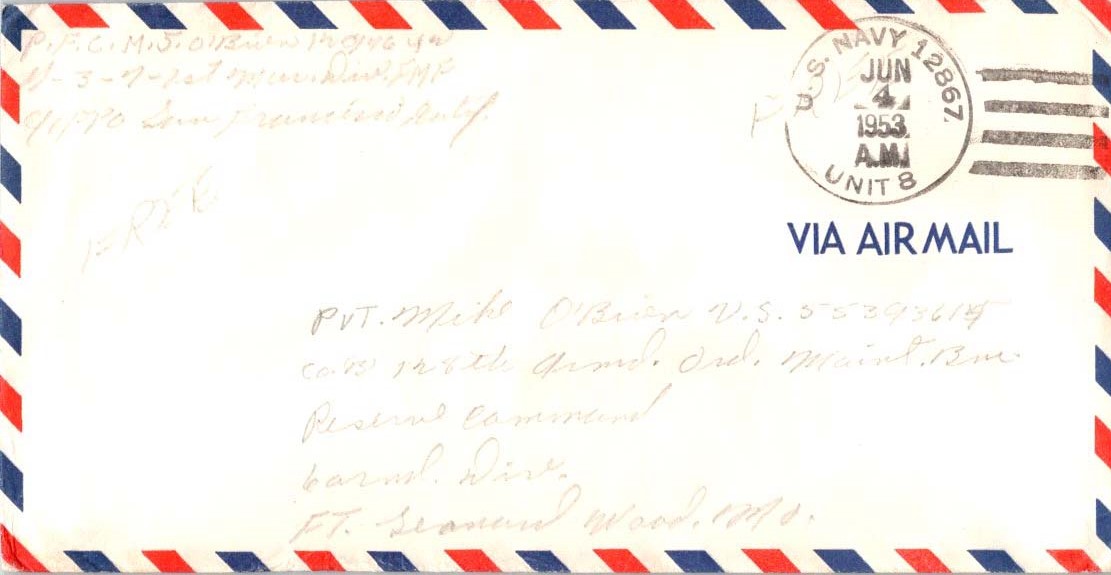 P.F.C. M.J. O'Brien
-3-7-1st Mar. Div. FMF
c/o FPO San Francisco Calif.
FREE
FREE
U.S. NAVY 12867.
JUN
4
1953
A.M.
UNIT 8
VIA AIR MAIL
PVT. Mike O'Brien U.S.
Co. B 128th Armd. Ord. Maint. Bn.
Reserve Command
6 armd. Div.
FT. Leonard Wood, Mo.